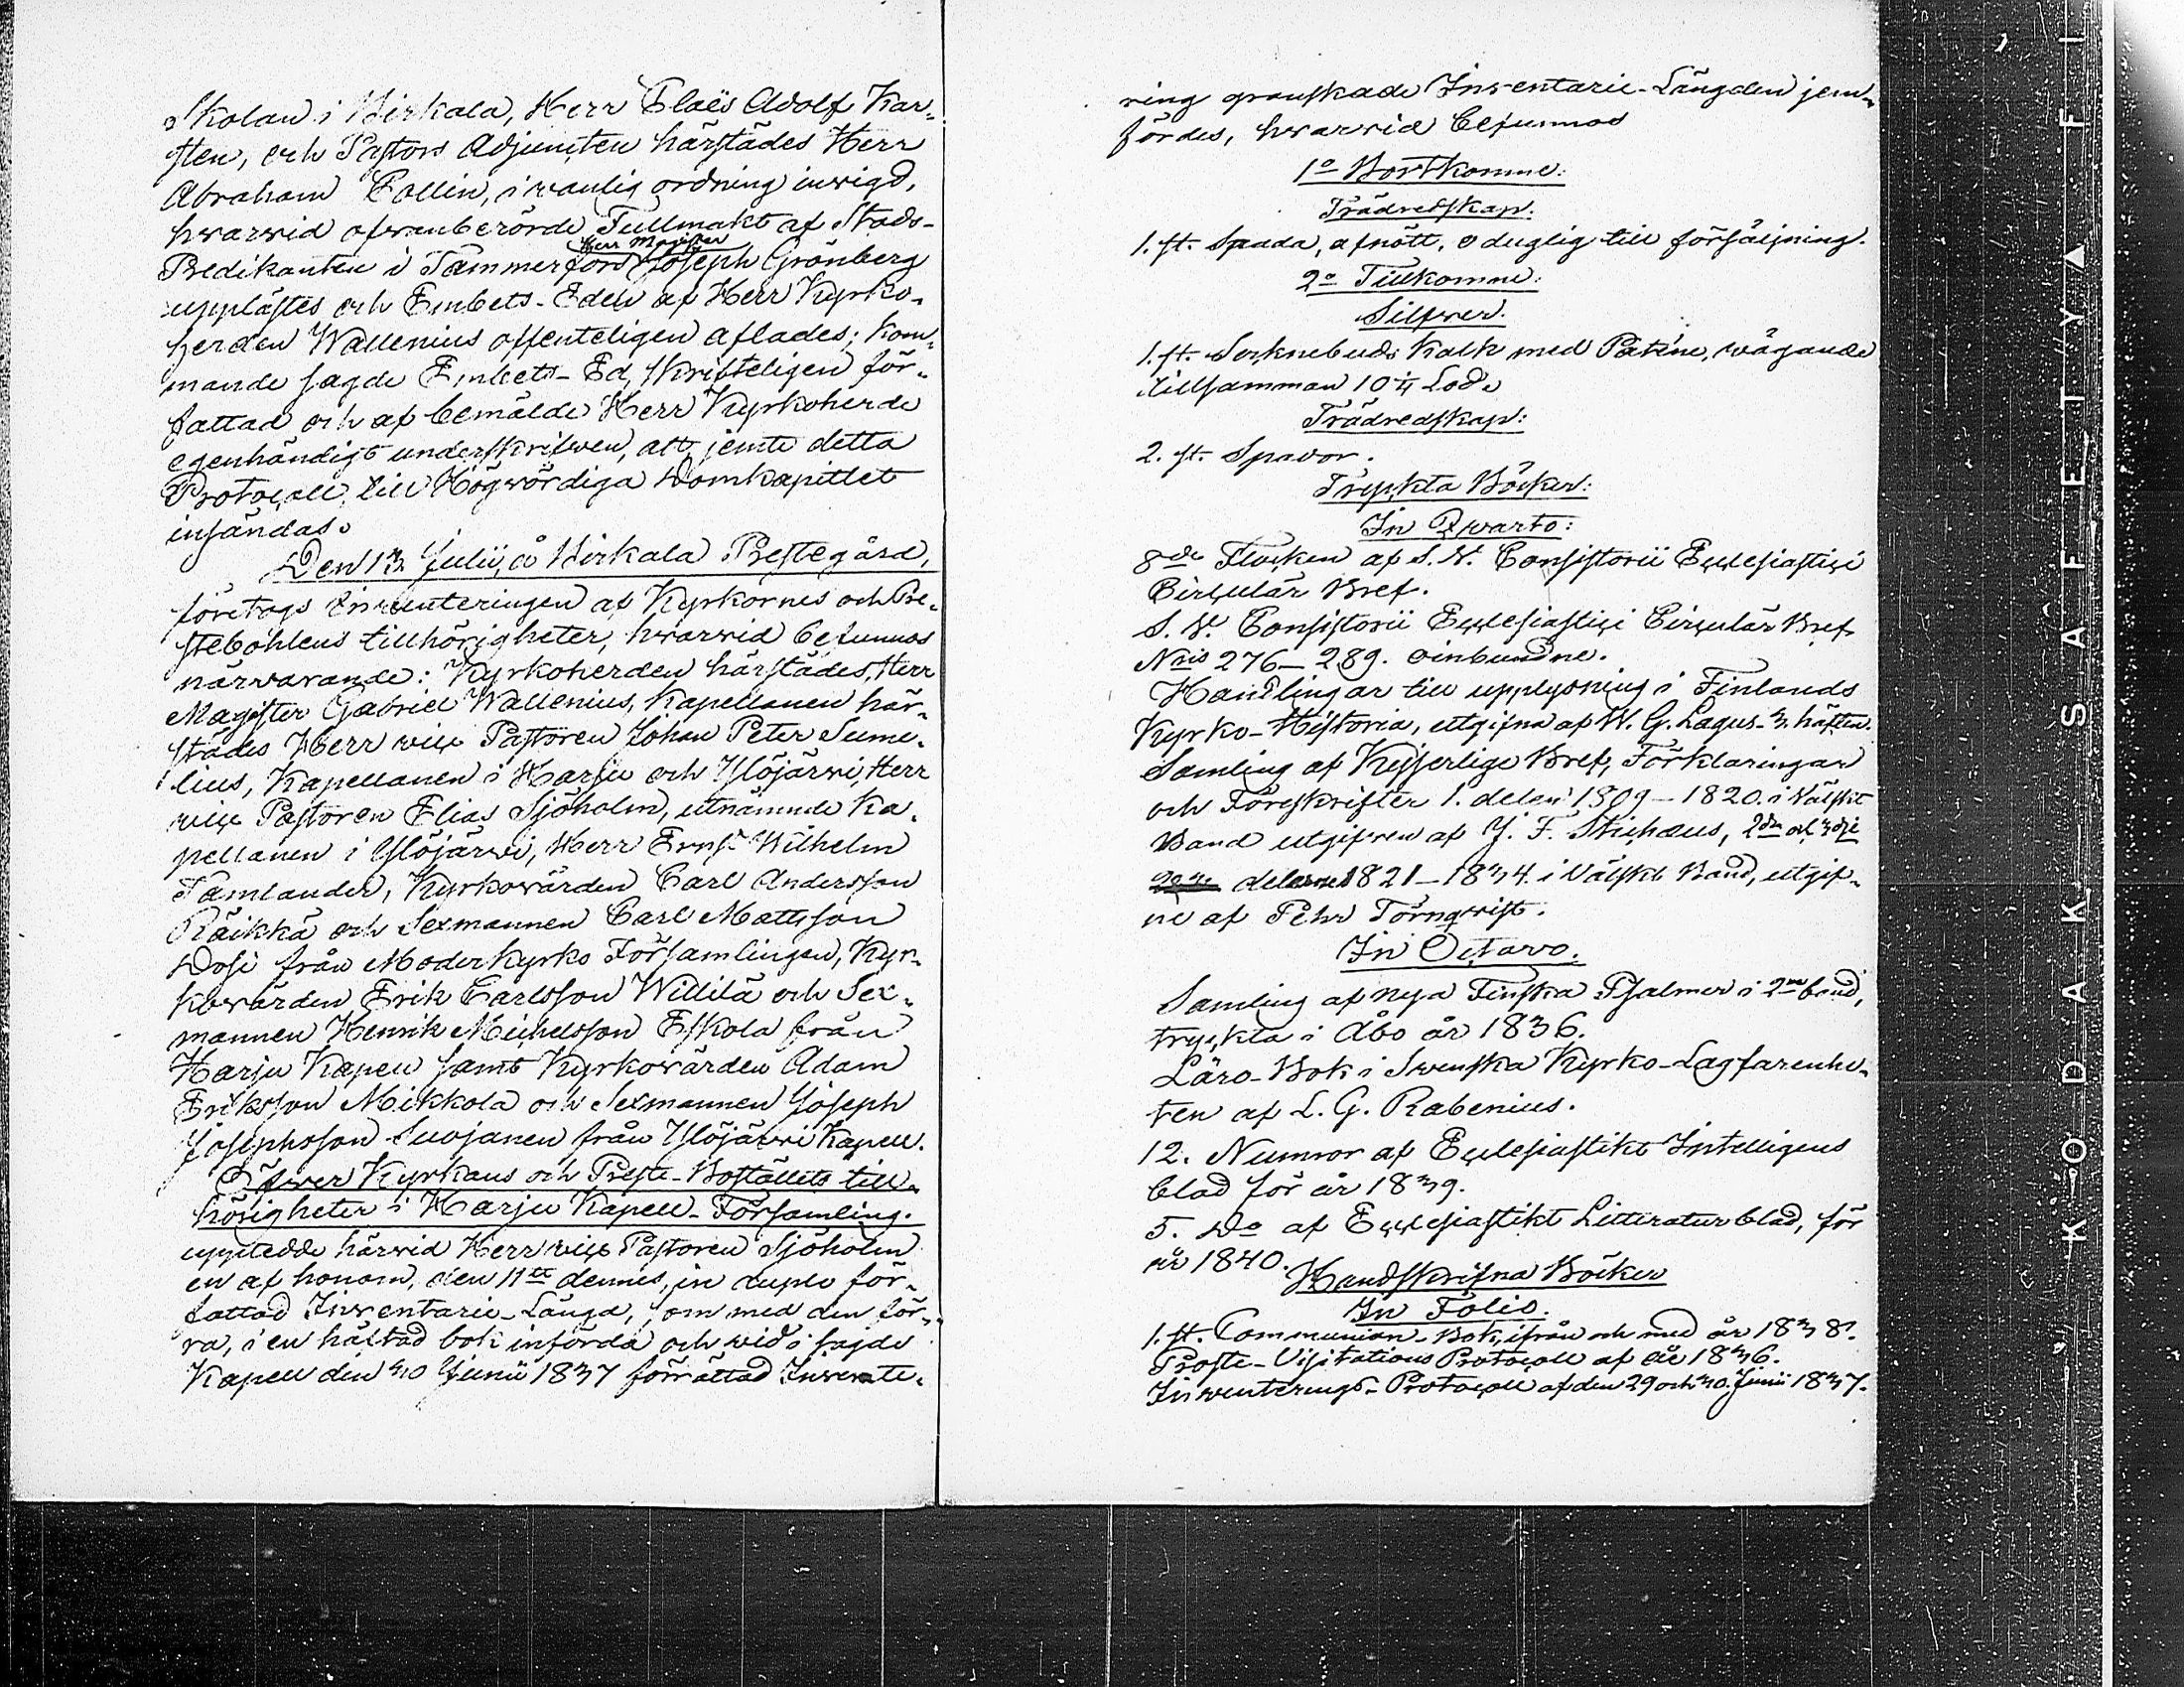 Skolan i Birkala, Herr Claës Adolf Kar-
sten, och Pastors Adjuncten härstädes Herr
Abraham Collin, i vanlig ordning invigd,
hvarvid ofvanberörde Fullmakt af Stads-
Predikanten i Tammerfors Herr Magister Joseph Grönberg
upplästes och Embets-Eden af Herr Kyrko-
herden Wallenius offenteligen aflades; kom-
mande sagde Embets-Ed, skrifteligen för-
fattad och af bemälde Herr Kyrkoherde
egenhändigt underskrifven, att jemte detta
Protocoll till Högvördiga Domkapitlet
insändas.
Den 13 Julii, å Birkala Prestegård,
företogs Inventeringen af Kyrkornes och Pre-
stebohlens tillhörigheter, hvarvid befunnos
närvarande: Kyrkoherden härstädes, Herr
Magister Gabriel Wallenius, Kapellanen här-
städes Herr vice Pastoren Johan Peter Sume-
lius, Kapellanen i Harju och Ylöjärvi, Herr
vice Pastoren Elias Sjöholm, utnämnde Ka-
pellanen i Ylöjärvi, Herr Ernst Wilhelm
Tamlander, Kyrkovärden Carl Andersson
Räikkä och Sexmannen Carl Mattsson
Dosi från Moderkyrko Församlingen, Kyr-
kovärden Erik Carlsson Willilä och Sex-
mannen Henrik Michelsson Eskola från
Harju Kapell samt Kyrkovärden Adam
Eriksson Mikkola och Sexmannen Joseph
Josephsson Suojanen från Ylöjärvi Kapell.
Öfver Kyrkans och Preste-Boställets till-
hörigheter i Harju Kapell-Församling.
uppteddе härvid Herr vice Pastoren Sjöholm
en af honom, den 11te dennes, in duplo för-
fattad Inventarie-Längd, som med den för-
ra, i en häftad bok införda och vid i sagde
Kapell den 30 Junii 1837 förrättad Invente-
ring granskade Inventarie-Längden jem-
fördes, hvarvid befunnos
1o Bortkomne:
Trädredskap.
1. st. Spada, afnött, oduglig till försäljning.
2o Tillkomne:
Silfver.
1. st. Socknebuds Kalk med Paténe, vägande
tillsamman 10 1/4 Lod.
Trädredskap:
2. st. Spador.
Tryckta Böcker:
In Qvarto:
8de Flocken af S. V. Consistorii Ecclesiastici
Circulär Bref.
S. V. Consistorii Ecclesiastici Circulär Bref
Nris 276-289. oinbundne.
Handlingar till upplysning i Finlands
Kyrko-Historia, utgifna af W. G. Lagus. 3. häften.
Samling af Kejserlige Bref, Förklaringar
och Föreskrifter 1. delen 1809-1820. i Välskt
Band utgifven af J. F. Stichæus, 2dra och 3dje
delarne 1821-1834. i Välskt Band, utgif-
ne af Pehr Törnqvist.
In Octavo.
Samling af nya Finska Psalmer i 2ne band,
tryckta i Åbo år 1836.
Läro-Bok i Svenska Kyrko-Lagfarenhe-
ten af L. G. Rabenius.
12. Numror af Ecclesiastikt Intelligens
blad för år 1839.
5. Do af Ecclesiastikt Litteratur blad, för
år 1840.
Handskrifna Böcker
In Folio.
1. st. Communion-Bok, ifrån och med år 1838.
Proste-Visitations Protocoll af år 1836.
Inventerings-Protocoll af den 29 och 30. Junii 1837.
KODAK SAFETY FI